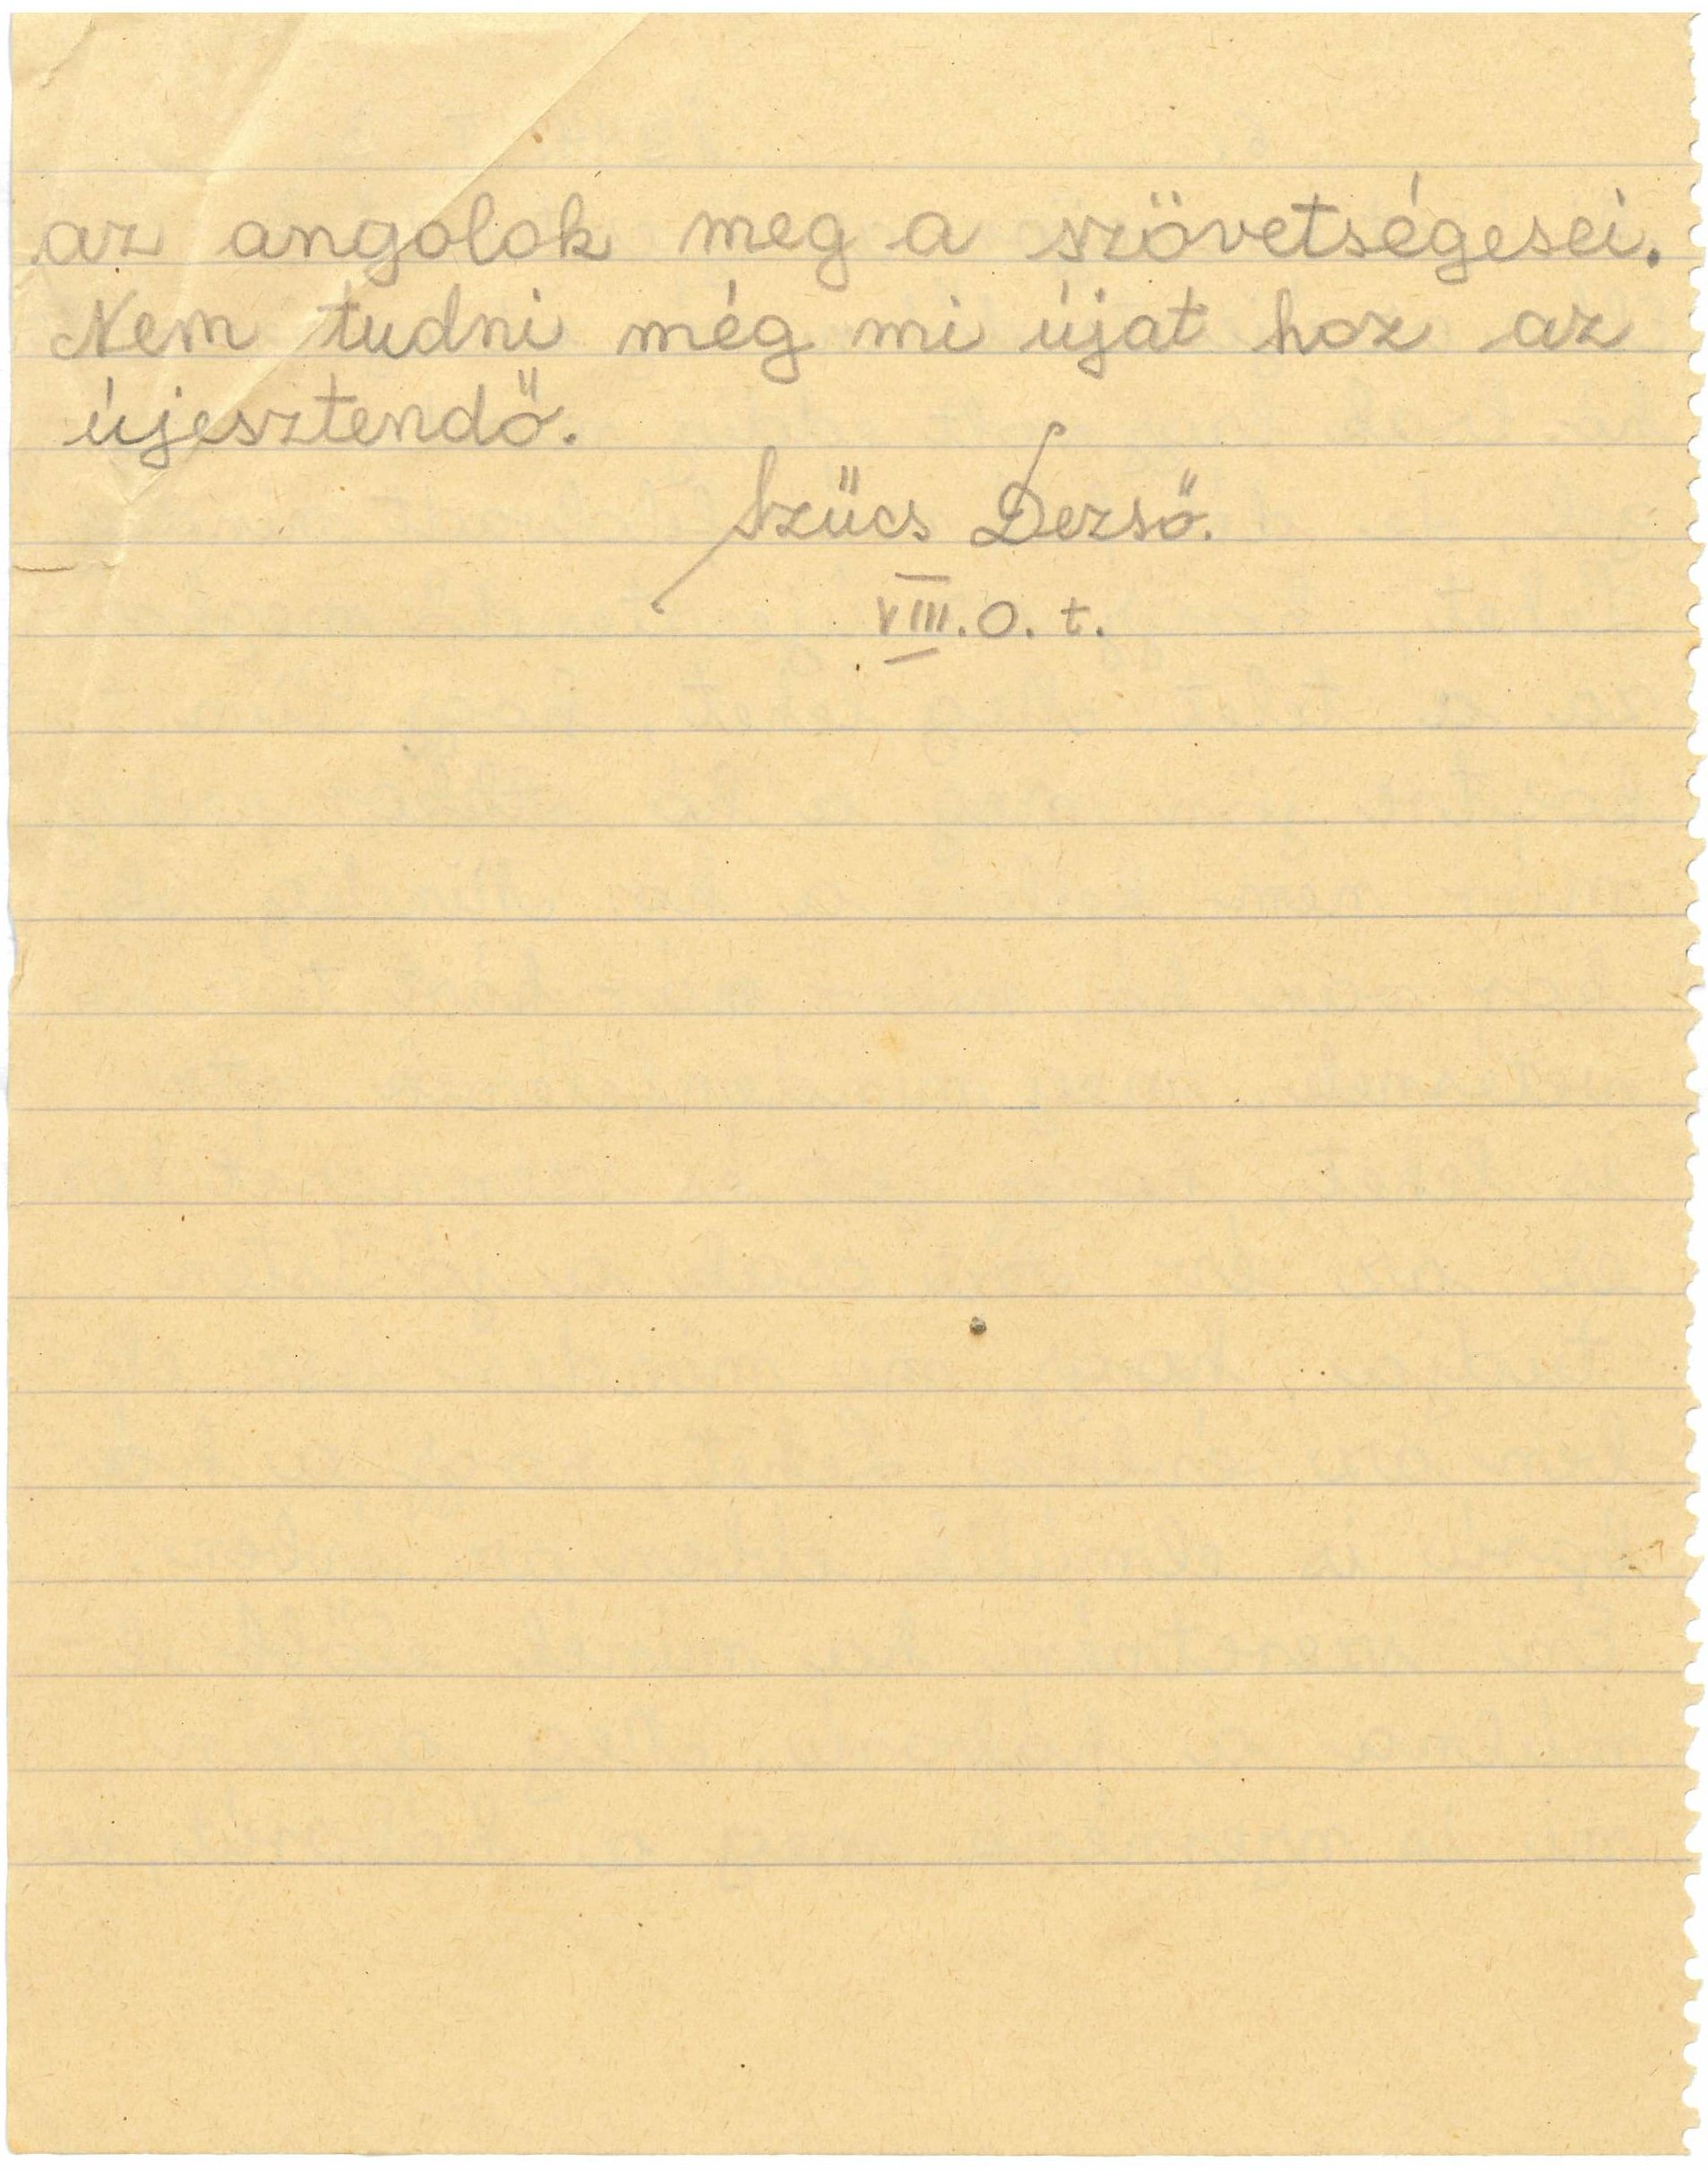 az angolok meg a szövetségesei.
Nem tudni még mi újat hoz az
újesztendő.
Szűcs Dezső.
VIII. o. t.